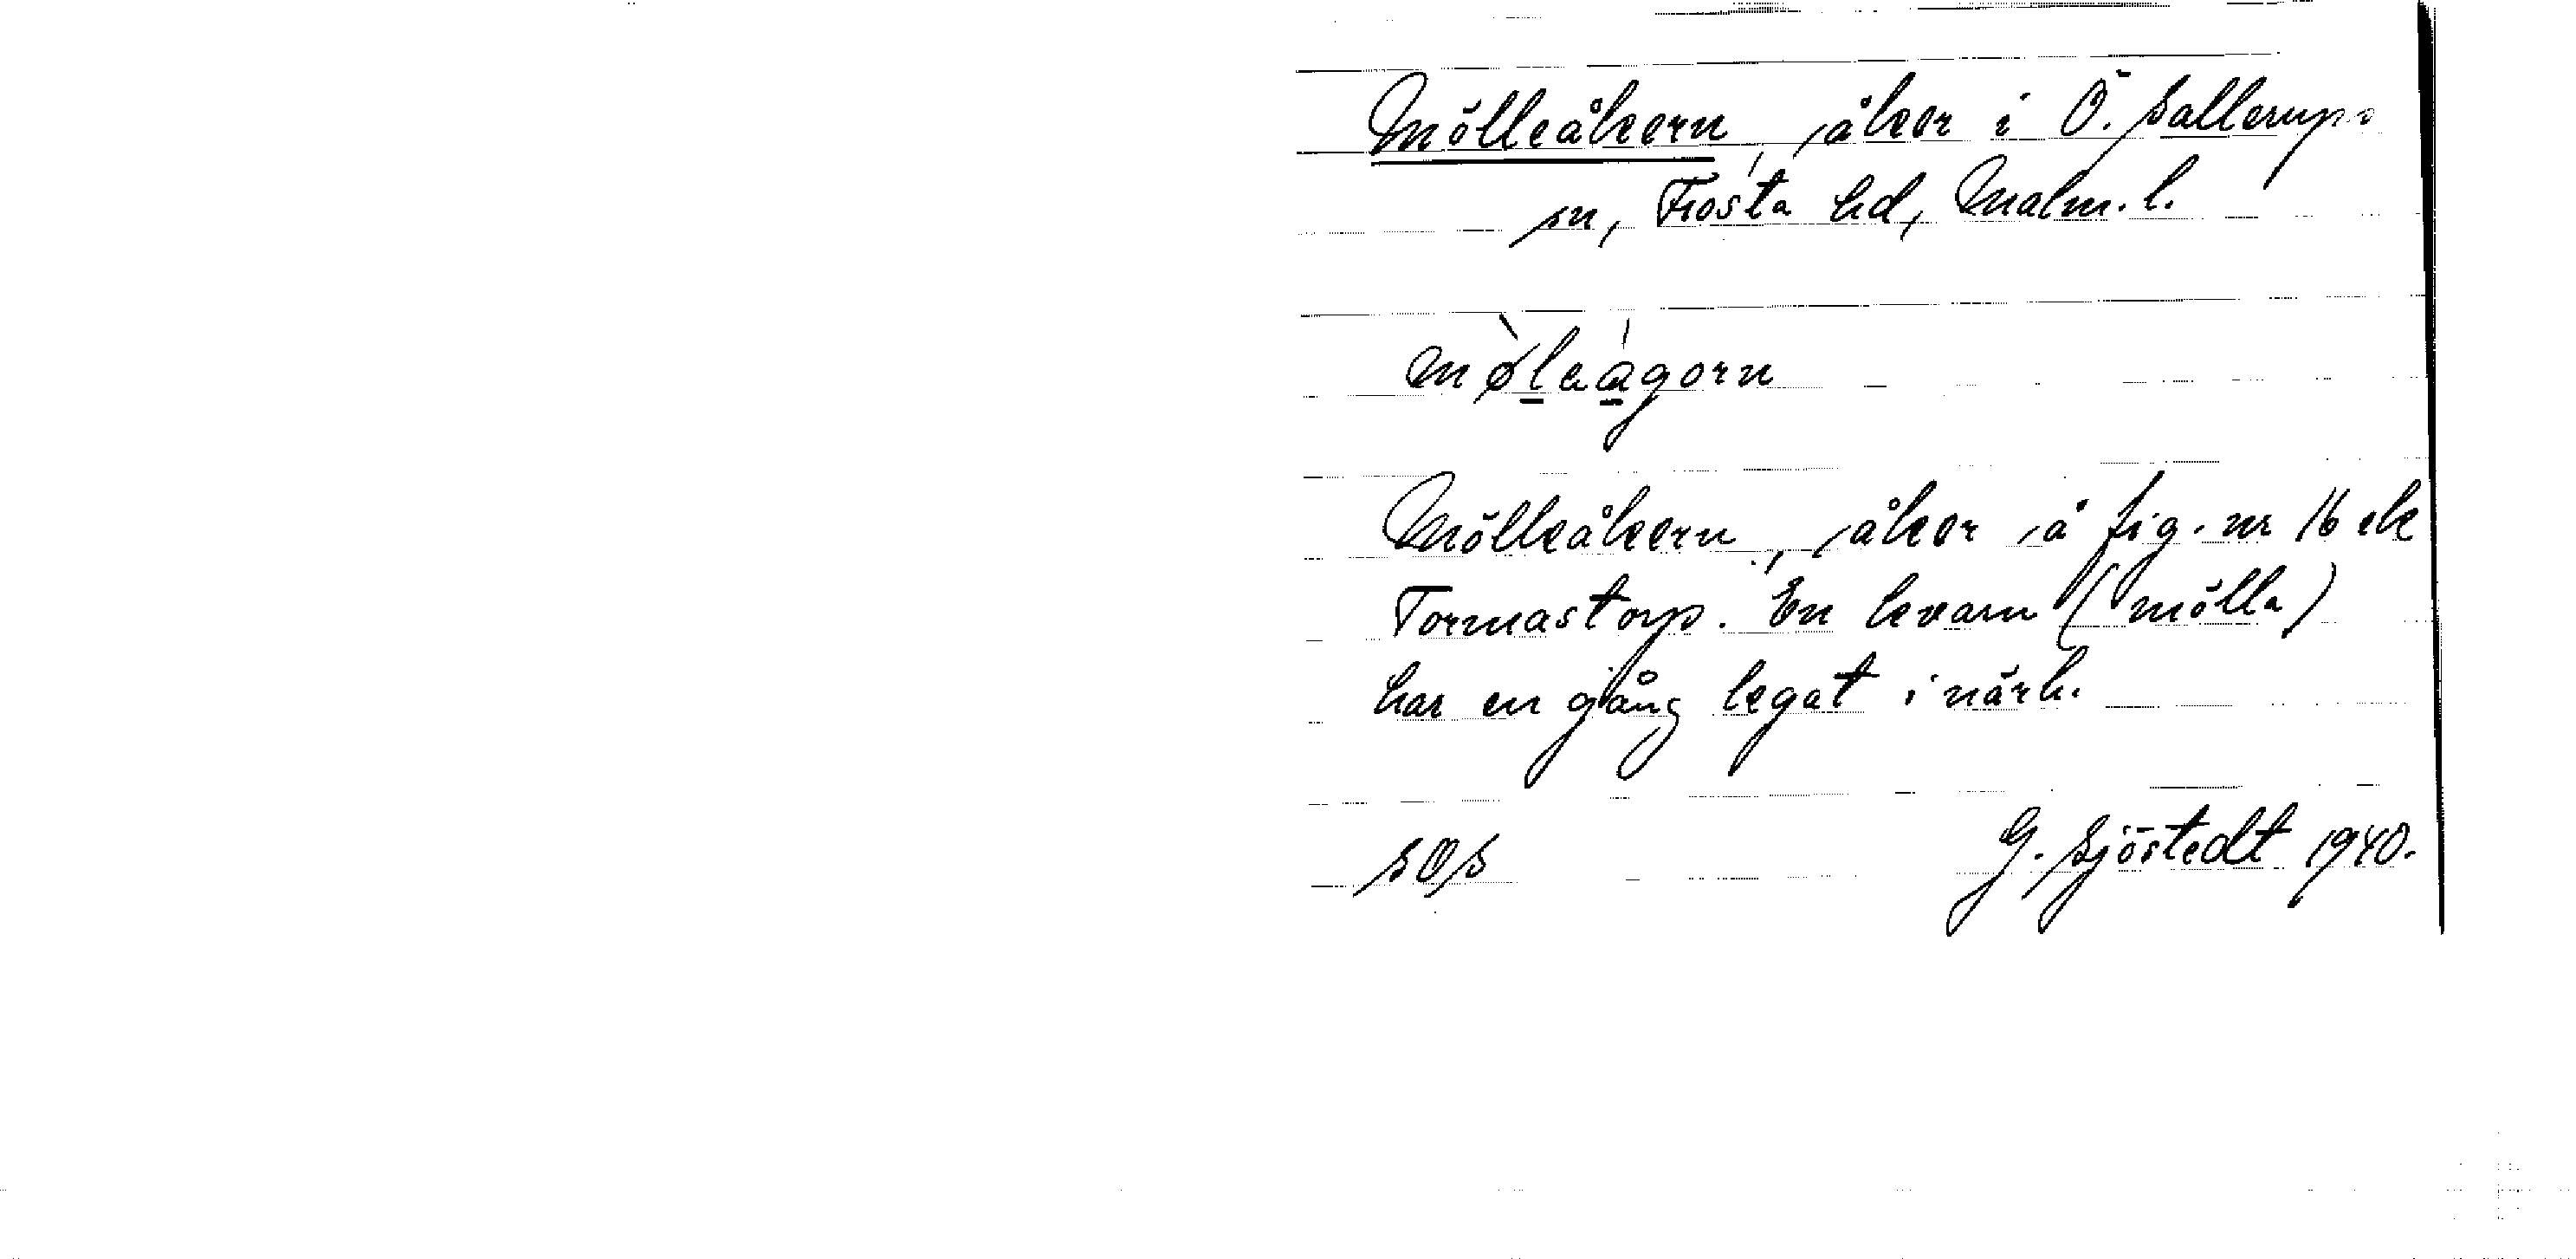 Mölleåkern, åker i Ö. Sallerups
sn, Frosta hd, Malm. l.
mø̀leágorn
Mölleåkern, åker å fig. nr 16 ek
Tormastorp. En kvarn (mölla)
har en gång legat i närh.
SOS G. Sjöstedt 1940.